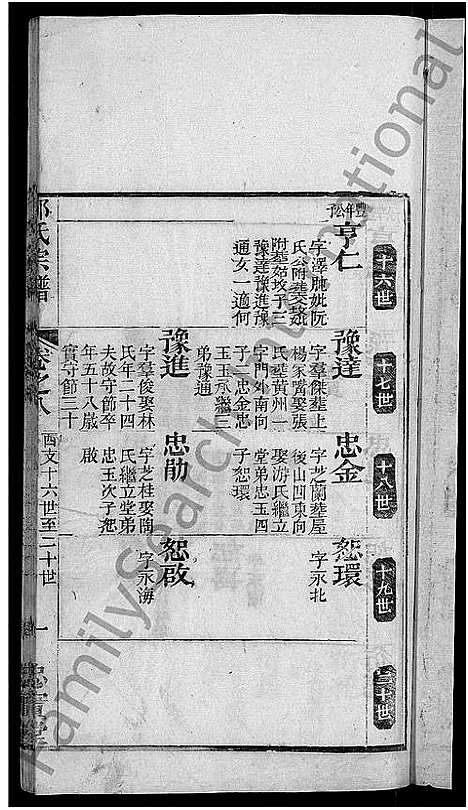 十六世
十七世
十八世
十九世
二十世
豐年公子
亨仁
字澤
妣阮
氏
附塟
子三
豫達豫進豫
通女一適何
豫達
字羣傑塟上
楊家嘴娶張
氏塟黄州一
字門外南向
子二忠金忠
玉玉承繼三
弟豫通
忠金
字芝蘭塟屋
後山四東向
娶游氏繼立
堂弟忠玉四
子恕環
恕環
字永北
豫進
字羣俊娶林
氏年二十四
夫故守節卒
年五十八嵗
實守節三十
忠勛
字芝桂娶陶
氏繼立堂弟
忠玉次子恕
啟
恕啟
字永海
氏宗譜
卷之八
酉支十六世至二十世
一
FamilySearch International